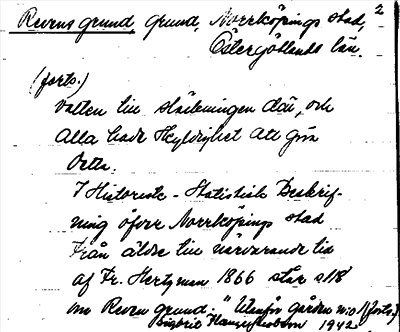 Revens grund, grund, Norrköpings stad, 2
Östergötlands län.
(forts.)
vatten till släckningen där, och
alla hade skyldighet att göra
detta.
I Historisk-Statistisk Beskrif-
ning öfver Norrköpings stad
från äldre till närvarande tid
af Fr. Hertzman 1866 står allt
om Reven grund: "Utanför gården n:o 1 (forts.)
Ingbrid 1942